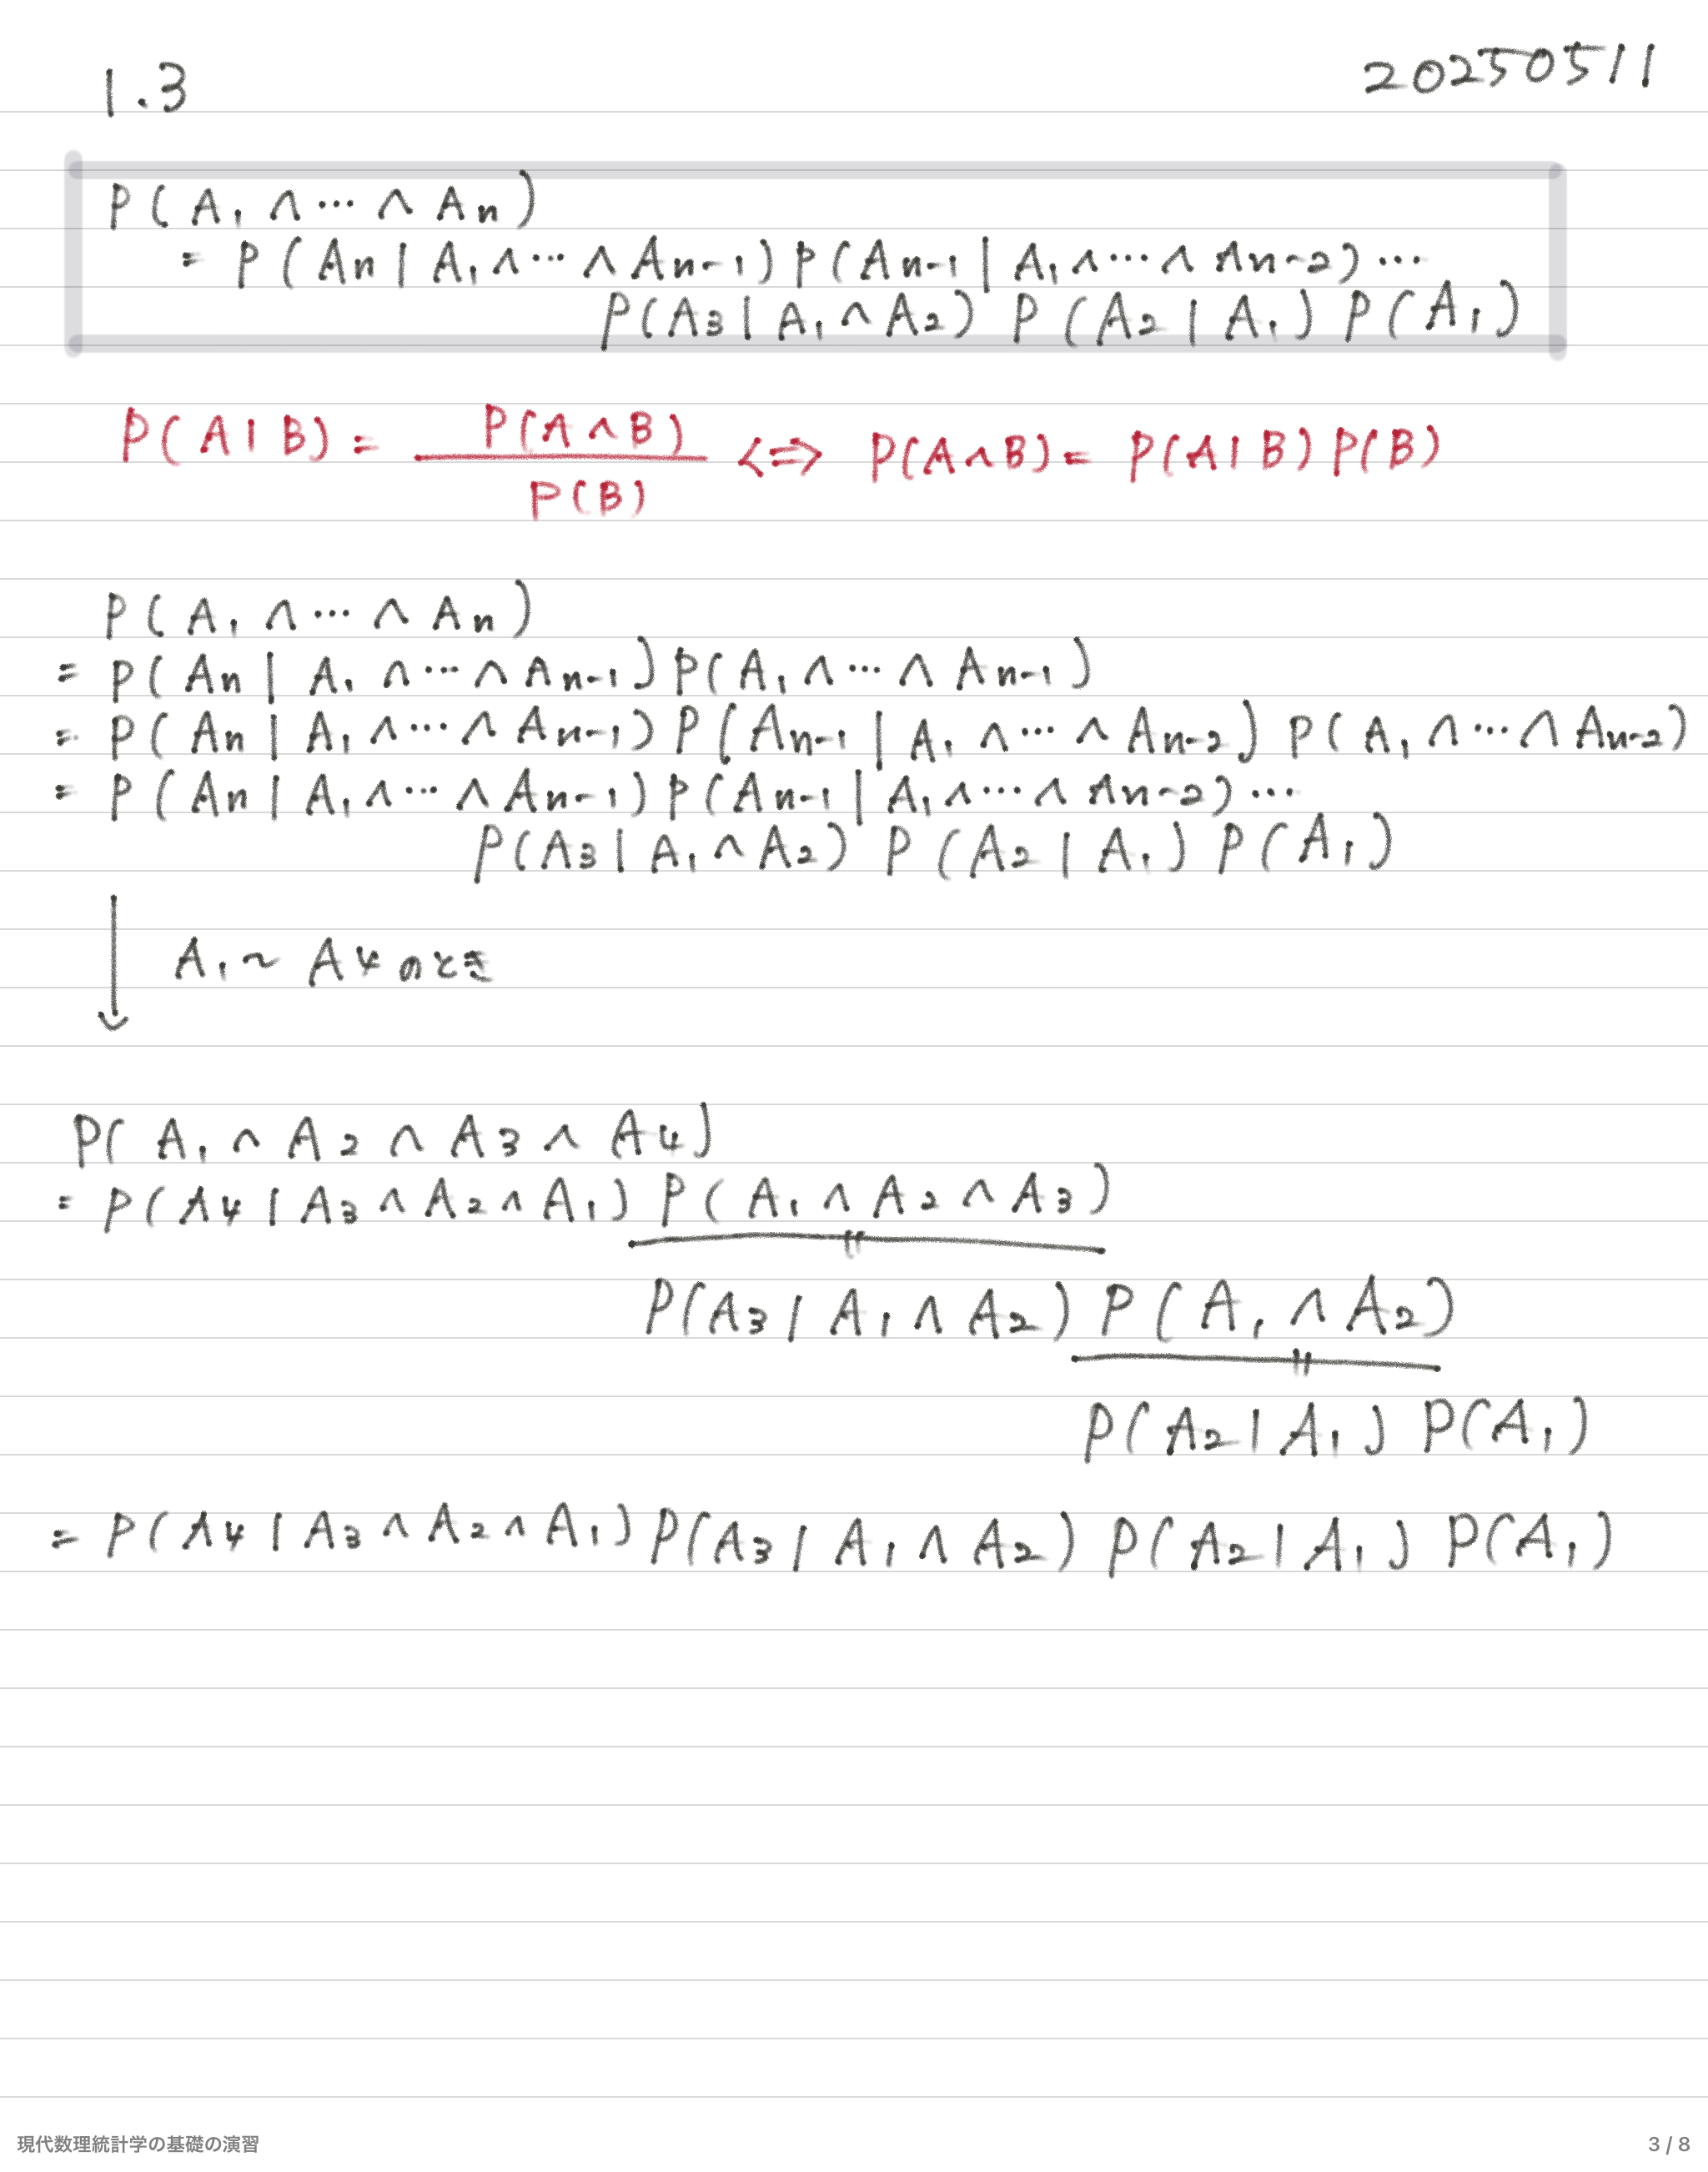 1.3
20250511
P(A₁∧…∧An)
= P(An|A₁∧…∧An-1)P(An-1|A₁∧…∧An-2)…
P(A₃|A₁∧A₂) P(A₂|A₁) P(A₁)
P(A|B) = P(A∧B)/P(B) ⇔ P(A∧B) = P(A|B)P(B)
P(A₁∧…∧An)
= P(An|A₁∧…∧An-1)P(A₁∧…∧An-1)
= P(An|A₁∧…∧An-1)P(An-1|A₁∧…∧An-2) P(A₁∧…∧An-2)
= P(An|A₁∧…∧An-1)P(An-1|A₁∧…∧An-2)…
P(A₃|A₁∧A₂) P(A₂|A₁) P(A₁)
↓ A₁~A₄のとき
P(A₁∧A₂∧A₃∧A₄)
= P(A₄|A₃∧A₂∧A₁) P(A₁∧A₂∧A₃)
P(A₃|A₁∧A₂) P(A₁∧A₂)
P(A₂|A₁) P(A₁)
= P(A₄|A₃∧A₂∧A₁)P(A₃|A₁∧A₂) P(A₂|A₁) P(A₁)
現代数理統計学の基礎の演習
3 / 8